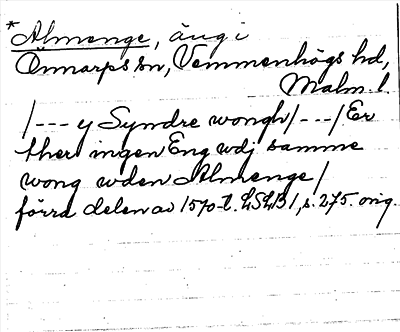 * Almenge, äng i
Önnarps sn, Vemmenhögs hd,
Malm. l.
/--- y Syndre wongh/---/Er
ther ingen Eng wdj samme
wong wden Almenge/
förra delen av 1570-t. LSLB1, s. 275. orig.